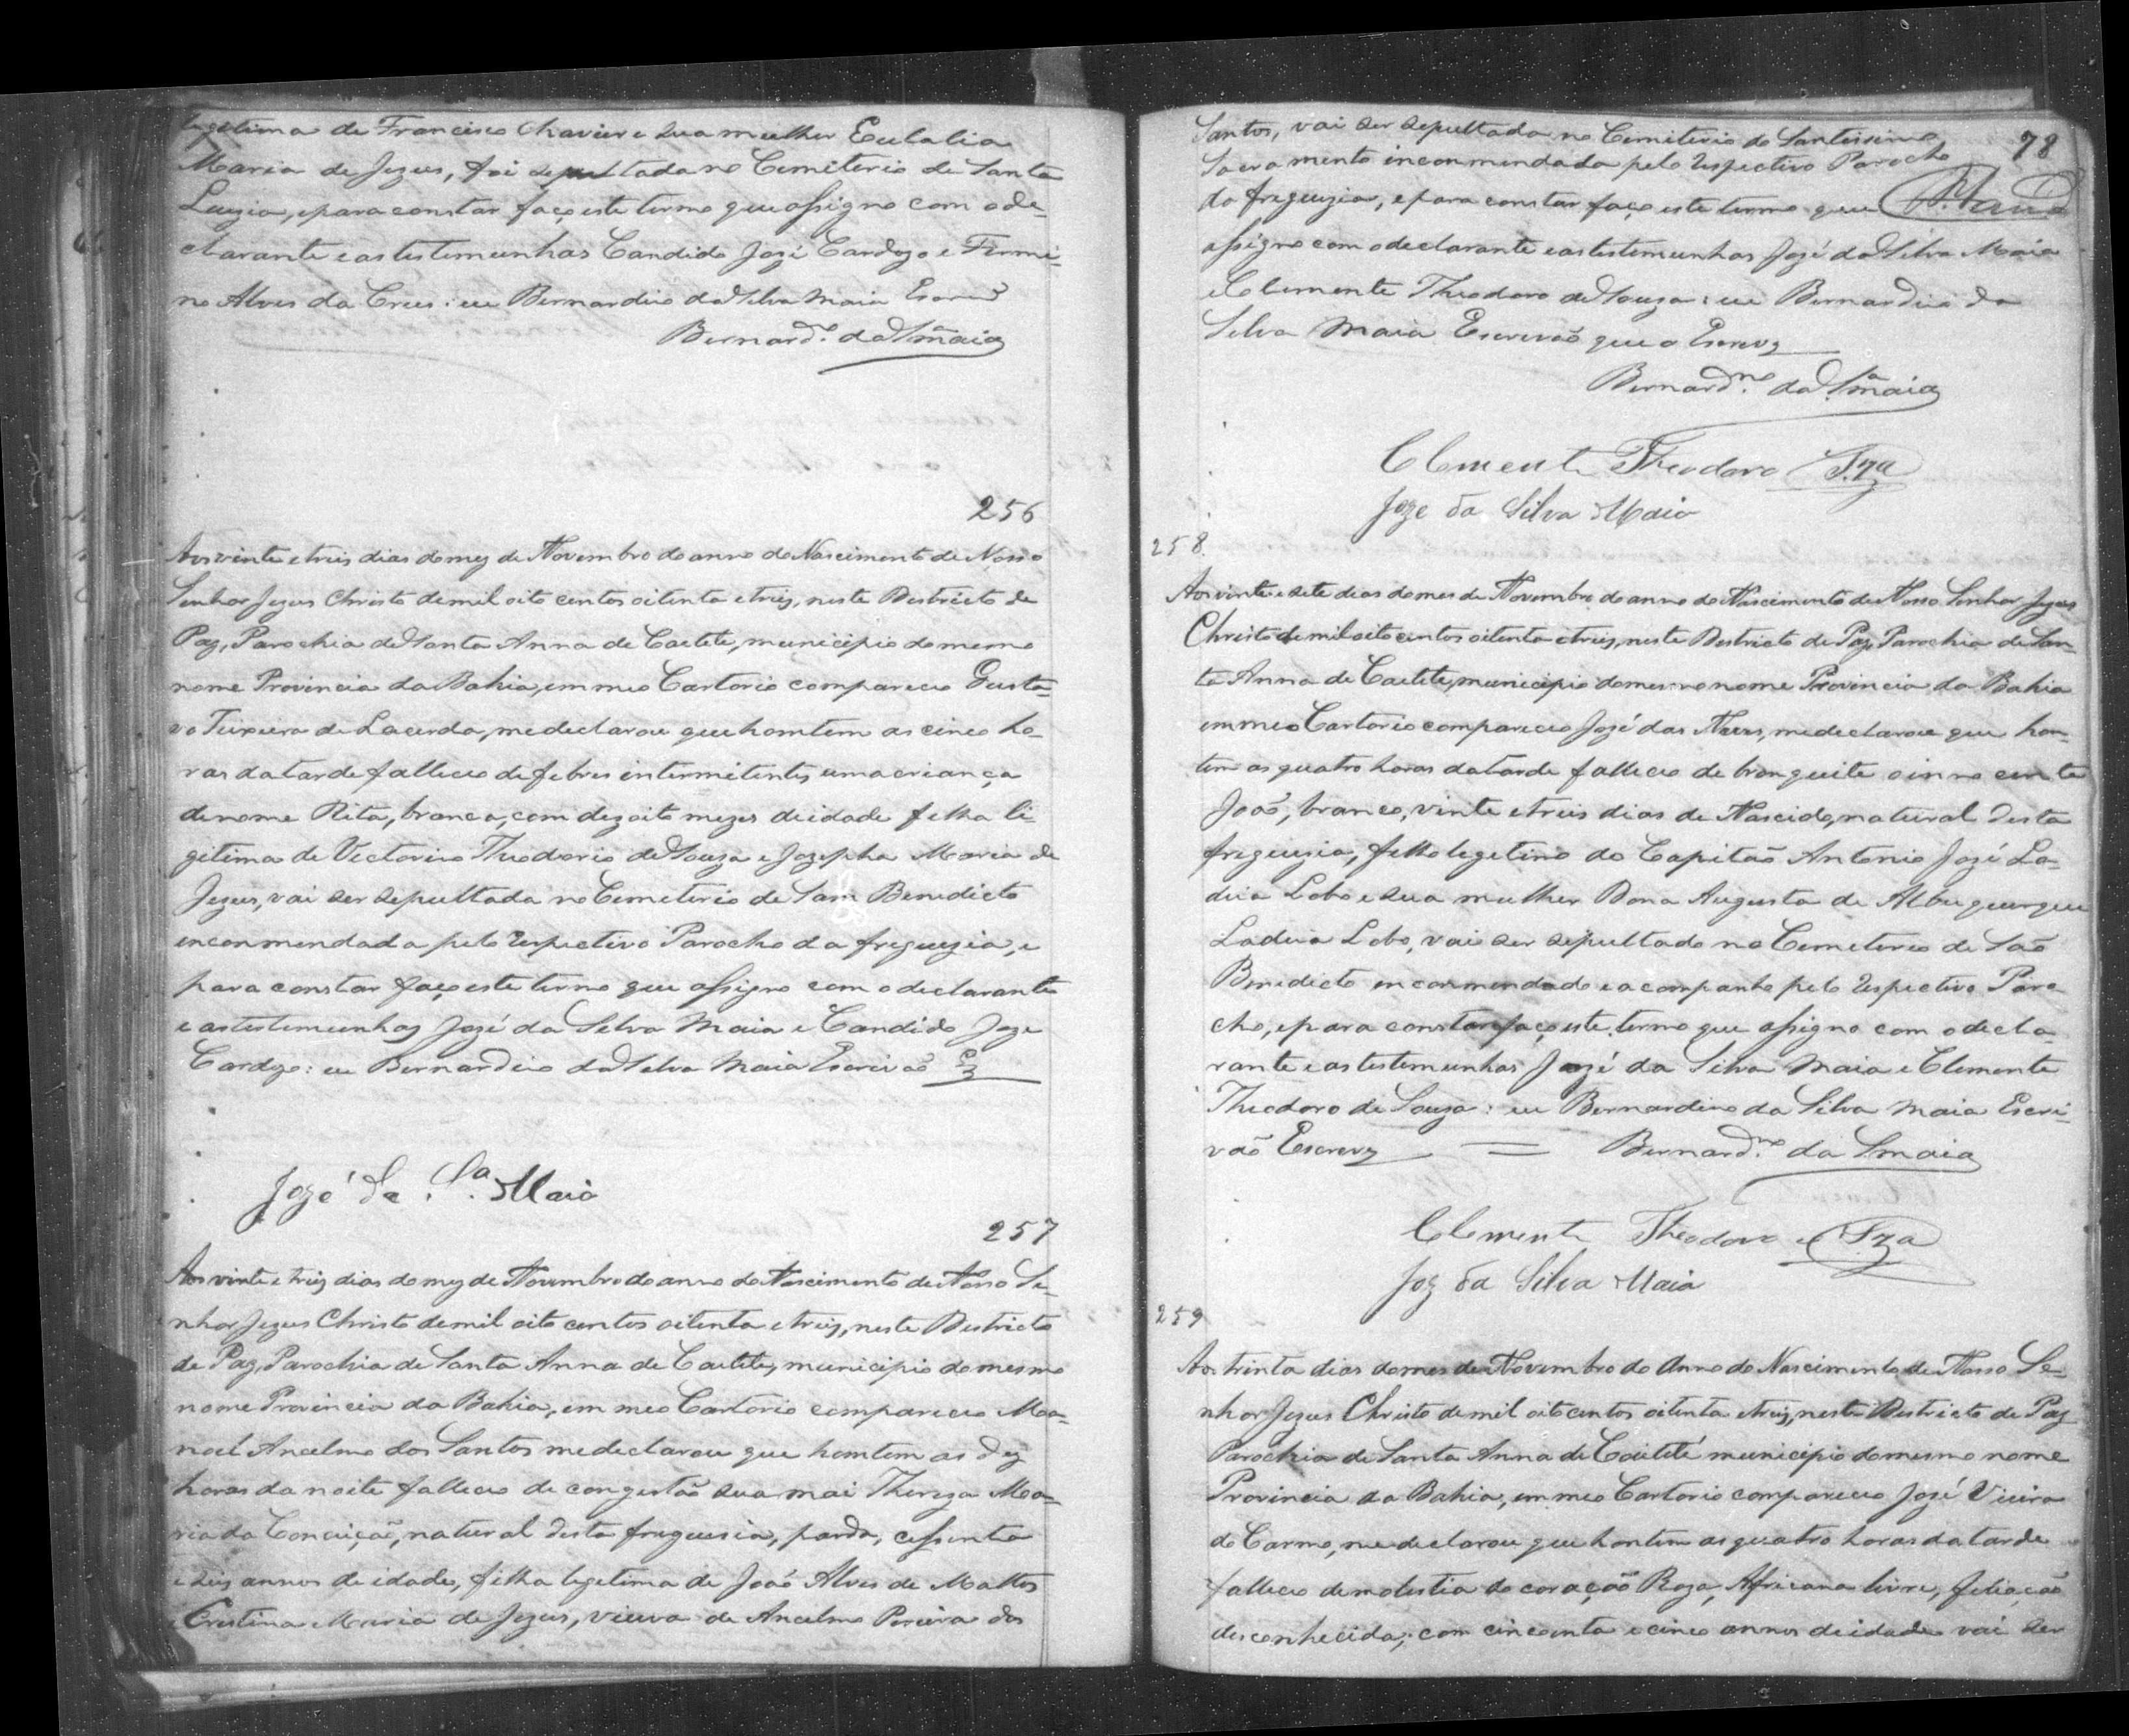 legitima de Francisco Chavier e sua mulher Eulalia
Maria de Jezus, foi sepultada no Cemiterio de Santa
Luzia, e para constar faço este termo que assigno com o de-
clarante e as testemunhas Candido Jozé Cardozo e Firmi-
no Alves da Crus: eu Bernardino da Silva Maia Escrivº
Bernardº. da Sª Maia
256
Aos vinte e treis dias do mez de Novembro do anno do Nascimento de Nosso
Senhor Jezus Christo de mil oito centos oitenta e treiz, neste Destricto de
Paz, Parochia de Santa Anna de Caetete, municipio do mesmo
nome Provincia da Bahia, em meo Cartorio compareceo Gusta-
vo Teixeira de Lacerda, me declarou que hontem as cinco ho-
ras da tarde falleceo de febres intermitentes uma criança
de nome Rita, branca, com dezoito mezes de idade filha li-
gitima de Victorino Theodorio de Souza e Jozepha Maria de
Jezus, vai ser sepultada no Cemeterio de Sam Benedicto
encommendada pelo respectivo Parocho da freguezia, e
para constar faço este termo que assigno com o declarante
e as testemunhas Jozé da Silva Maia e Candido Joze
Cardozo: eu Bernardino da Silva Maia Escrivão
Jozé da Sª. Maia
257
Aos vinte e treiz dias do mez de Novembro do anno do Nascimento de Nosso Se-
nhor Jezus Christo de mil oito centos oitenta e treiz, neste Destricto
de Paz, Parochia de Santa Anna de Caetete, municipio do mesmo
nome Provincia da Bahia, em meo Cartorio compareceo Ma-
noel Ancelmo dos Santos me declarou que hontem as dez
horas da noite falleceo de congestão sua mai Thereza Ma-
ria da Conceição, natural desta freguesia, parda, cessenta
e seis annos de idade, filha legetima de João Alves de Mattos
e Crestina Maria de Jezus, viuva de Ancelmo Pereira dos
78
Santos, vai ser sepultada no Cemiterio do Santissimo
Sacramento incommendada pelo respectivo Parocho
da freguezia, e para constar faço este termo que
assigno com o declarante e as testemunhas Jozé da Silva Maia
e Clemente Theodoro de Souza: eu Bernardino da
Silva Maia Escrevão que o Escrevy
Bernardno. da Sª Maia
Clemente Theodoro Sza
Joze da Silva Maia
258.
Aos vinte e sete dias do mes de Novembro do anno do Nascimento de Nosso Senhor Jezus
Christo de mil oito centos oitenta e treis, neste Destricto de Paz, Parochia de San-
ta Anna de Caetete, municipio do mesmo nome Provincia da Bahia
em meo Cartorio compareceo Jozé das Neves, me declarou que hon-
tem as quatro horas da tarde falleceo de bronquite o innocente
João, branco, vinte e treis dias de Nascido, natural desta
freguezia, filho legetimo do Capitão Antonio Jozé La-
deia Lobo e sua mulher Dona Augusta de Albuquerque
Ladeia Lobo, vai ser sepultado no Cemeterio de São
Benedicto encommendado e acompanho pelo respectivo Paro-
cho, e para constar faço este termo que assigno com o decla-
rante e as testemunhas Jozé da Silva Maia e Clemente
Theodoro de Souza: eu Bernardino da Silva Maia Escri-
vão Escrevy = Bernardno. da S. Maia
Clemente Theodoro e Sza
Joz da Silva Maia
259
Aos trinta dias do mes de Novembro do Anno do Nascimento de Nosso Se-
nhor Jezus Christo de mil oito centos oitenta e treiz, neste Destricto de Paz
Parochia de Santa Anna de Caeteté municipio do mesmo nome
Provincia da Bahia, em meo Cartorio compareceo José Vieira
do Carmo, me declarou que hontem as quatro horas da tarde
falleceo de molestia do coração Roza, Africana livre, filiação
desconhecida, com cincoenta e cinco annos de idade vai ser